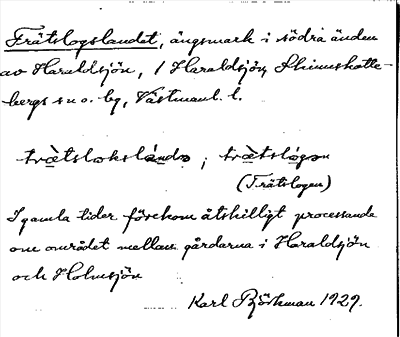 Trätslogslandet, ängsmark i södra änden
av Haraldsjön, i Haraldsjön, Skinnskatte-
bergs sn o. bg, Västmanl. l.
trätslåkslándə ; trätslógən
(Trätslogen)
I gamla tider förekom åtskilligt processande
om området mellan gårdarna i Haraldsjön
och Holmsjön
Karl Björkman 1929.